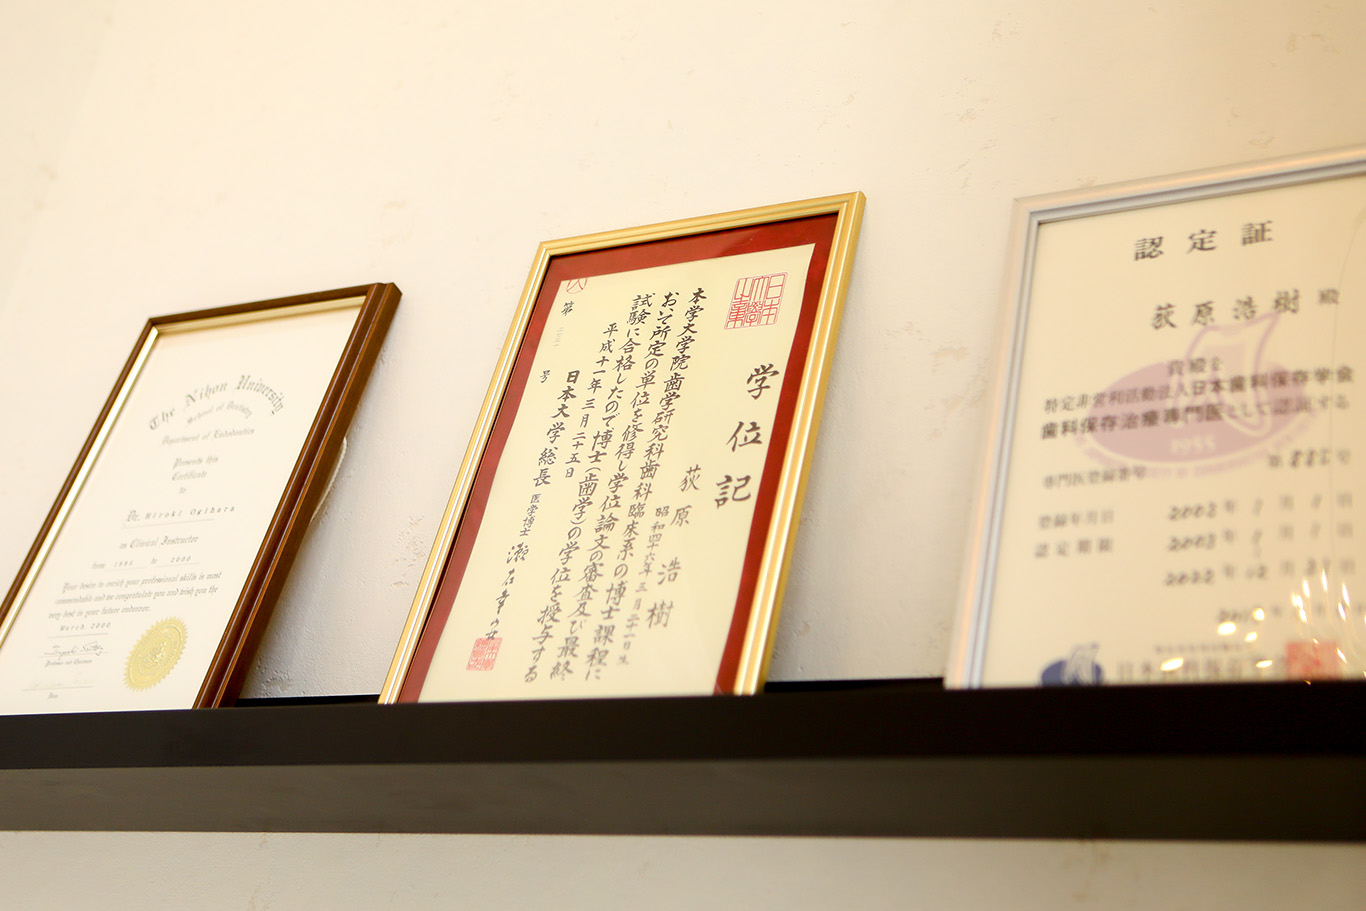 The Nihon University
School of Dentistry
Department of Endodontics
Presents this
Certificate
to
Dr. Hiroki Ogihara
as Clinical Instructor
from 1998 to 2000
Your desire to enrich your professional skills is most
commendable and we congratulate you and wish you the
very best in your future endeavor.
March 2000
学位記
荻原浩樹
昭和四十六年三月二十一日生
本学大学院歯学研究科歯科臨床系の博士課程に
おいて所定の単位を修得し学位論文の審査及び最終
試験に合格したので博士(歯学)の学位を授与する
平成十一年三月二十五日
日本大学総長 医学博士 瀬在幸安
第 号
認定証
荻原浩樹 殿
貴殿を
特定非営利活動法人日本歯科保存学会
歯科保存治療専門医として認証する
1955
専門医登録番号
登録年月日
認定期間